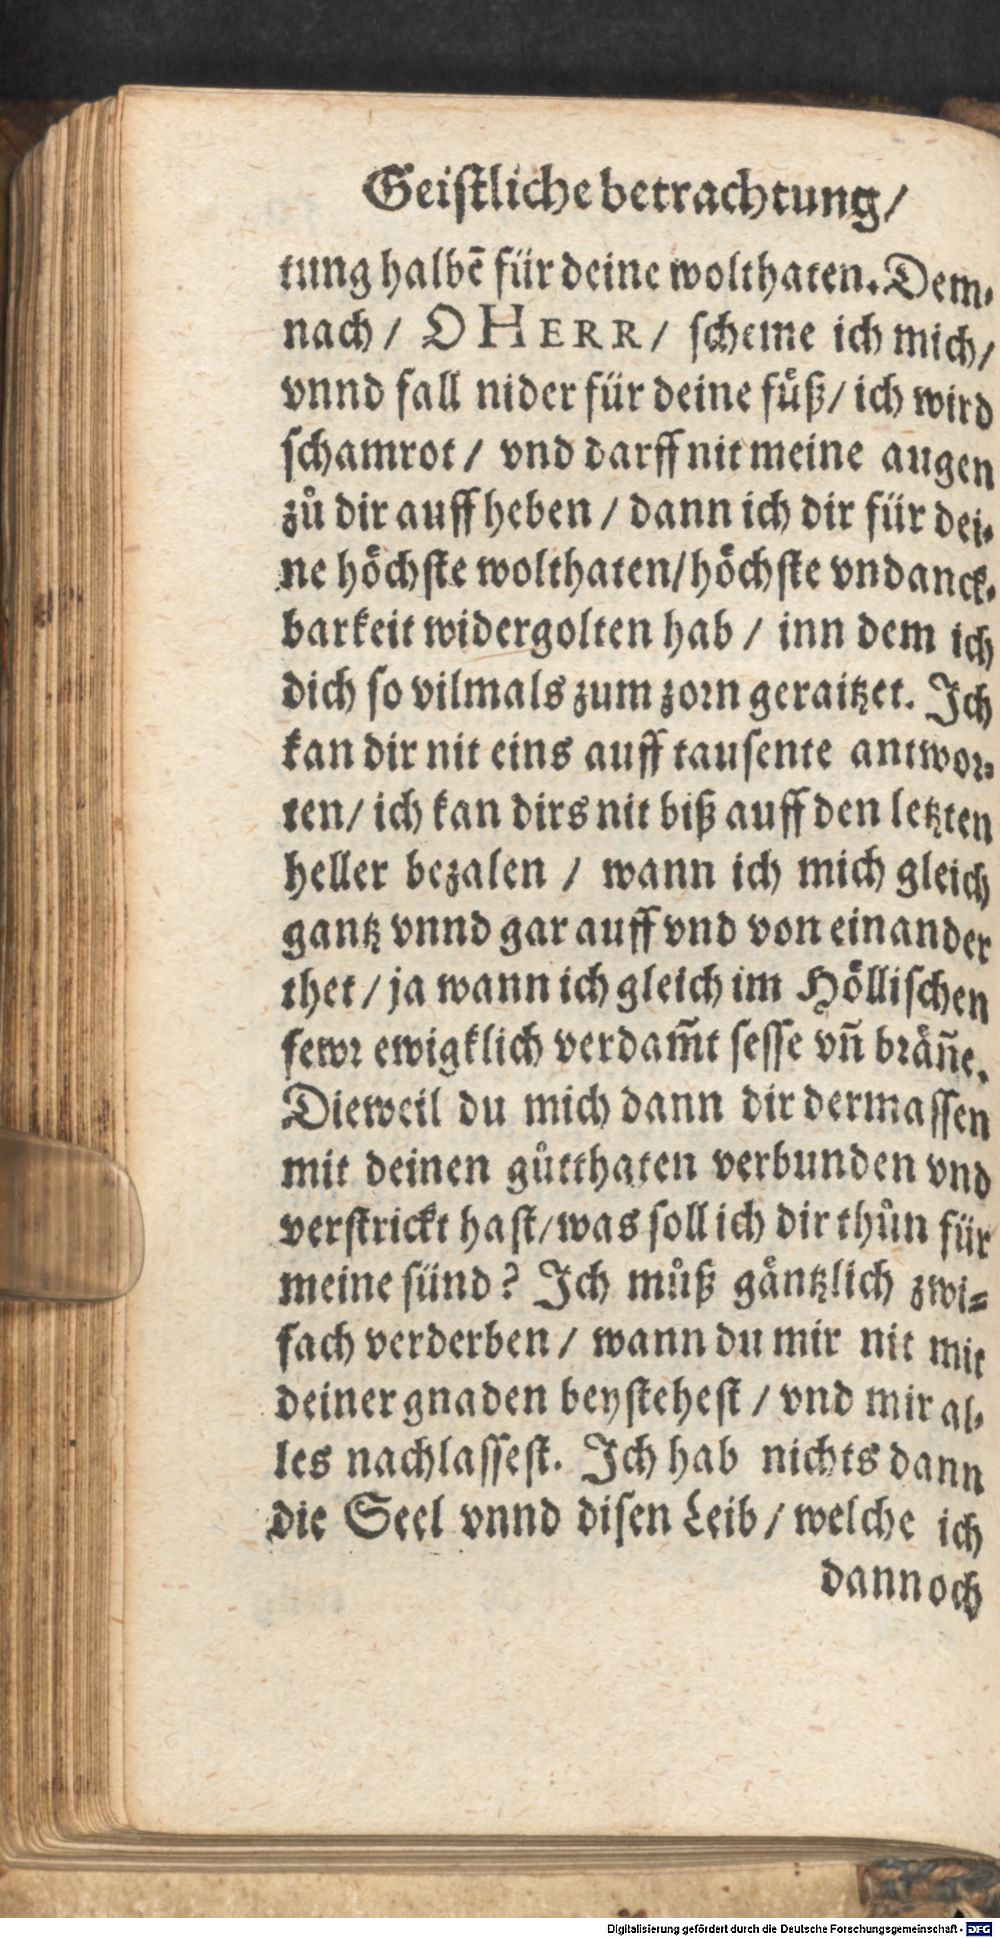 Geistliche betrachtung/
tung halbē für deine wolthaten. Dem-
nach/ O HERR/ scheme ich mich/
vnnd fall nider für deine fuͤß/ ich wird
schamrot/ vnd darff nit meine augen
zů dir auff heben/ dann ich dir für dei-
ne hoͤchste wolthaten/ hoͤchste vndanck-
barkeit widergolten hab/ inn dem ich
dich so vilmals zum zorn geraitzet. Ich
kan dir nit eins auff tausente antwor-
ten/ ich kan dirs nit biß auff den letzten
heller bezalen/ wann ich mich gleich
gantz vnnd gar auff vnd von einander
thet/ ja wann ich gleich im Hoͤllischen
fewr ewigklich verdam̄t sesse vn̄ braͤn̄e.
Dieweil du mich dann dir dermassen
mit deinen gůtthaten verbunden vnd
verstrickt hast/ was soll ich dir thůn für
meine sünd? Ich můß gaͤntzlich zwi-
fach verderben/ wann du mir nit mit
deiner gnaden beystehest/ vnd mir al-
les nachlassest. Ich hab nichts dann
die Seel vnnd disen Leib/ welche ich
dannoch
Digitalisierung gefördert durch die Deutsche Forschungsgemeinschaft - DFG